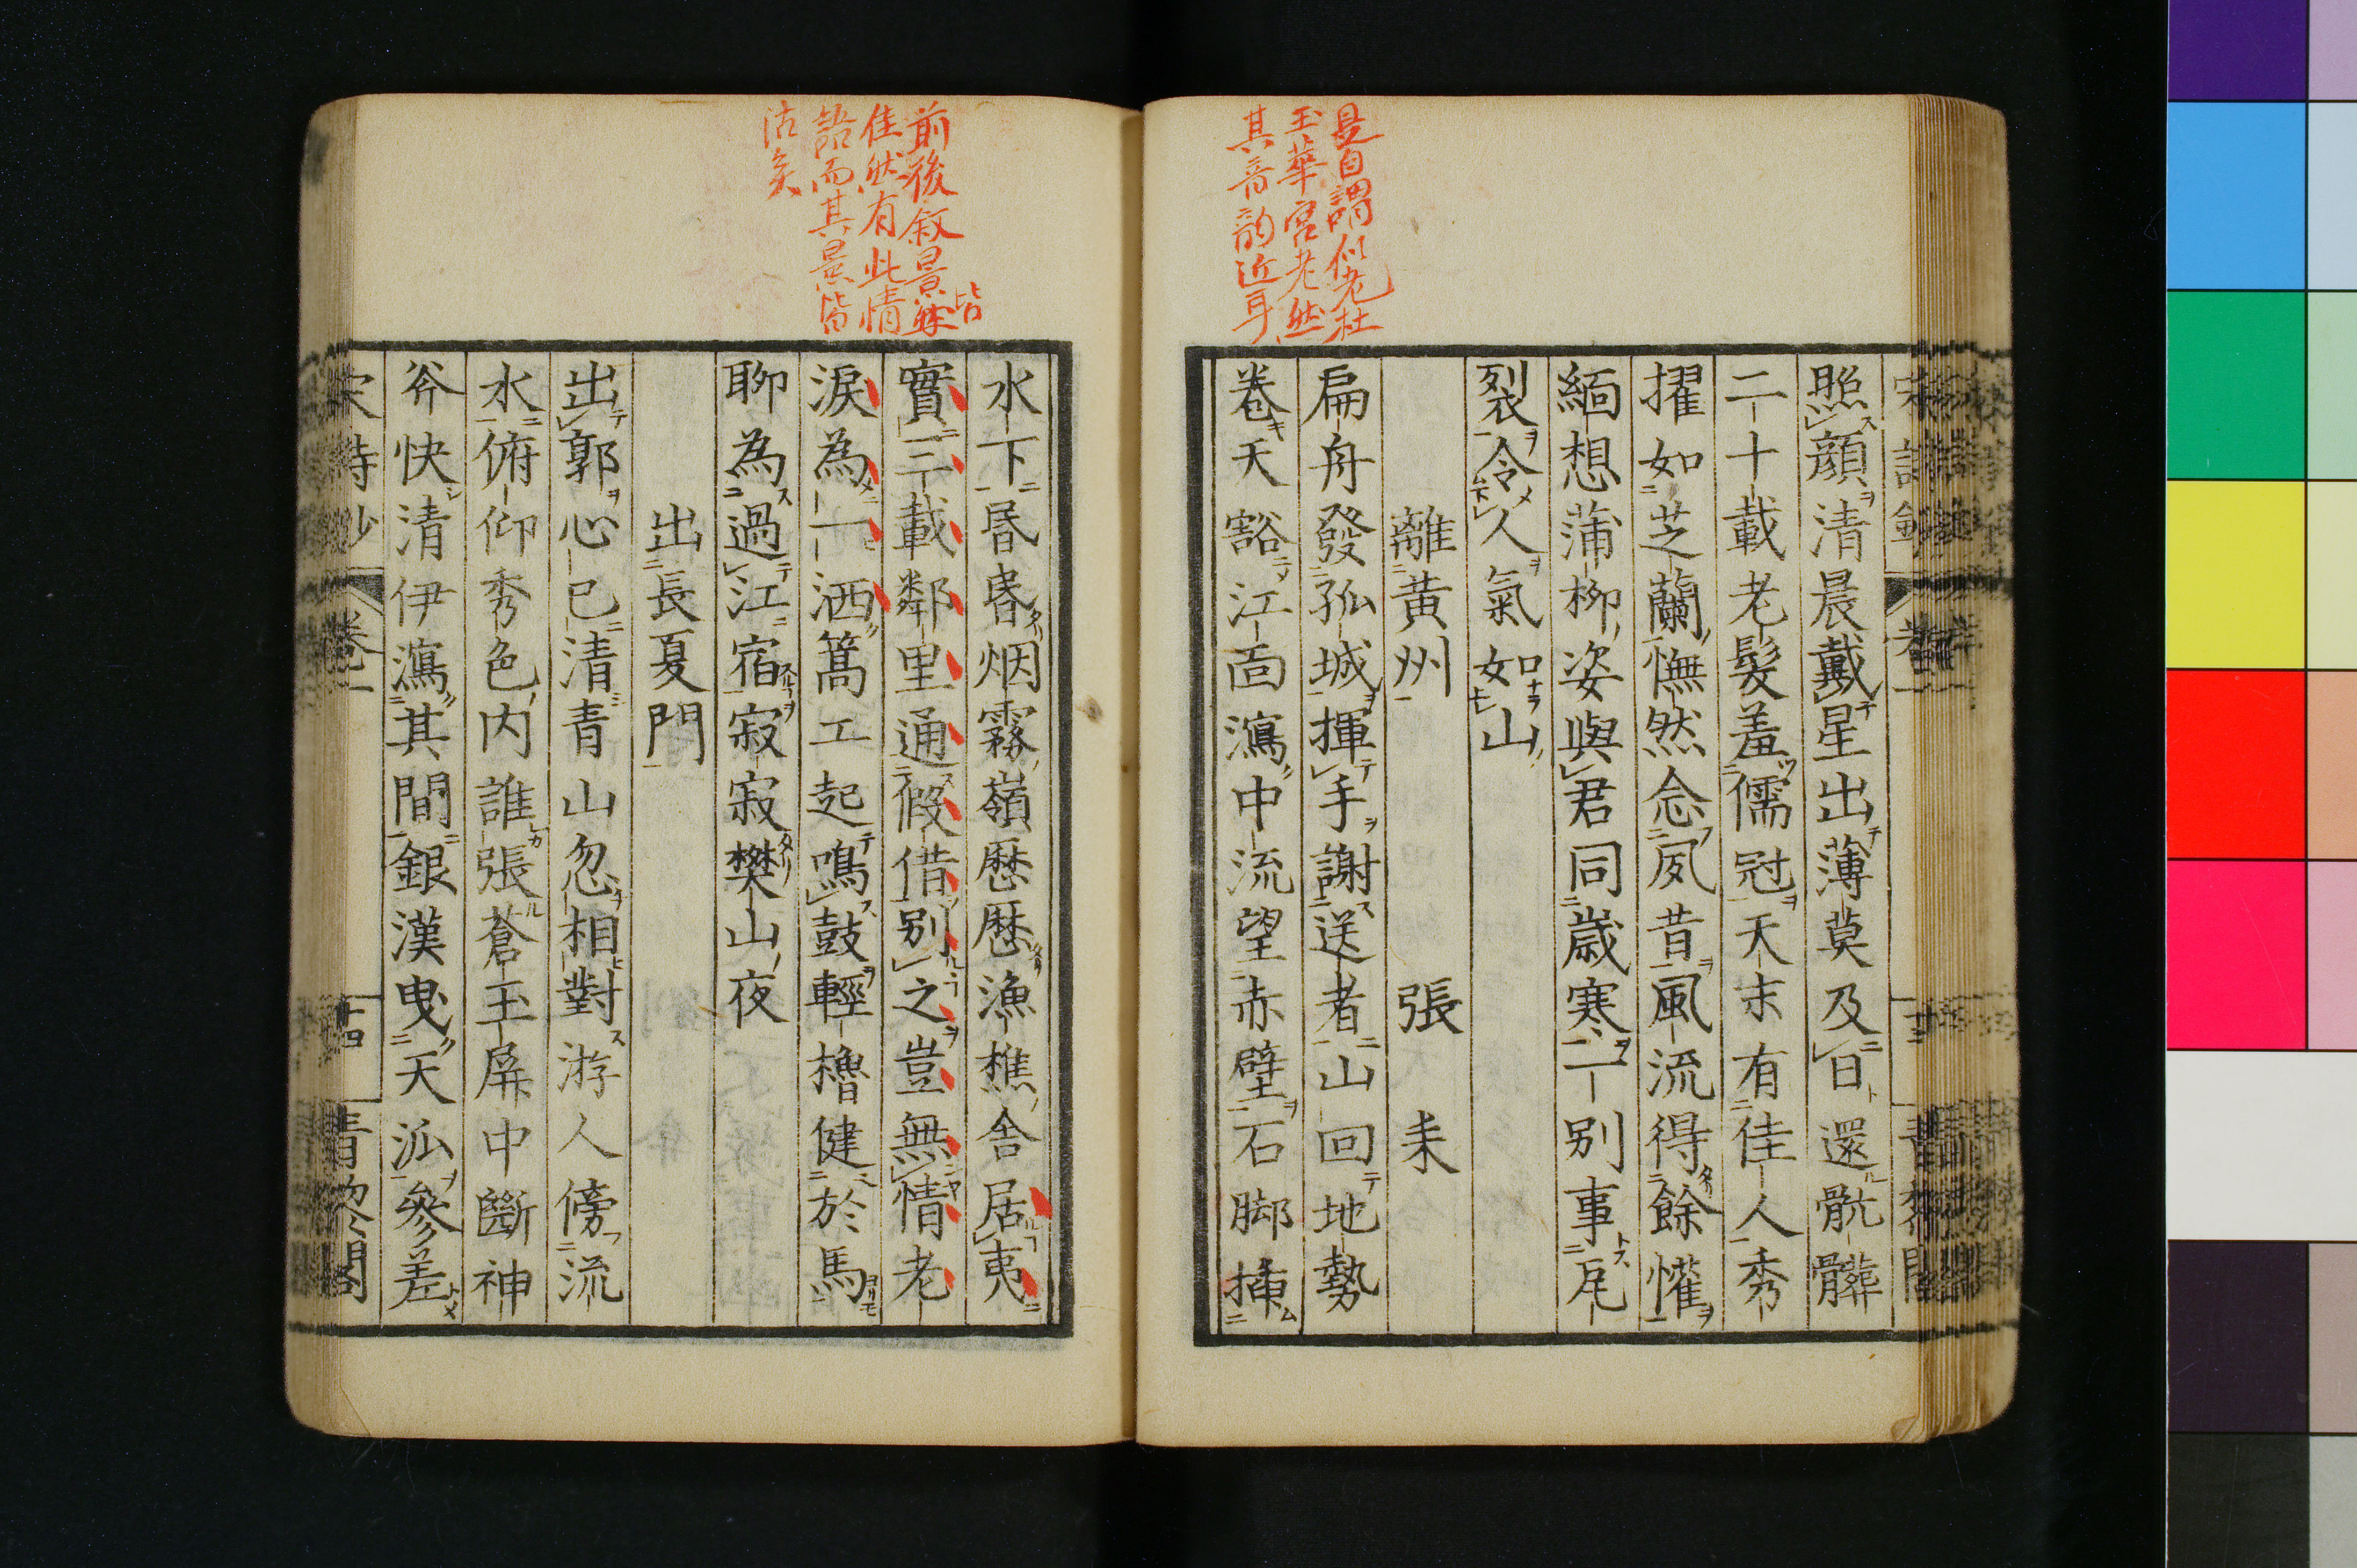 是自謂似老杜
玉華宮老然
其音韵近耳
照顏清晨戴星出薄莫及日還骯髒
二十載老髮羞儒冠天末有佳人秀
擢如芝蘭憮然念夙昔風流得餘懽
緬想蒲柳姿與君同歲寒一別事瓦
裂令人氣如山
離黃州　張耒
扁舟發孤城揮手謝送者山回地勢
卷天豁江面瀉中流望赤壁石脚插
前後叙景皆
佳然有此情
語而其景皆
活矣
水下昏昏烟霧嶺歷歷漁樵舍居夷
實三載鄰里通假借別之豈無情老
淚為一洒篙工起鳴鼓輕櫓健於馬
聊為過江宿寂寂樊山夜
出長夏門
出郭心已清青山忽相對游人傍流
水俯仰秀色內誰張蒼玉屏中斷神
斧快清伊瀉其間銀漢曳天派參差
宋詩鈔　卷一　十四　青黎閣